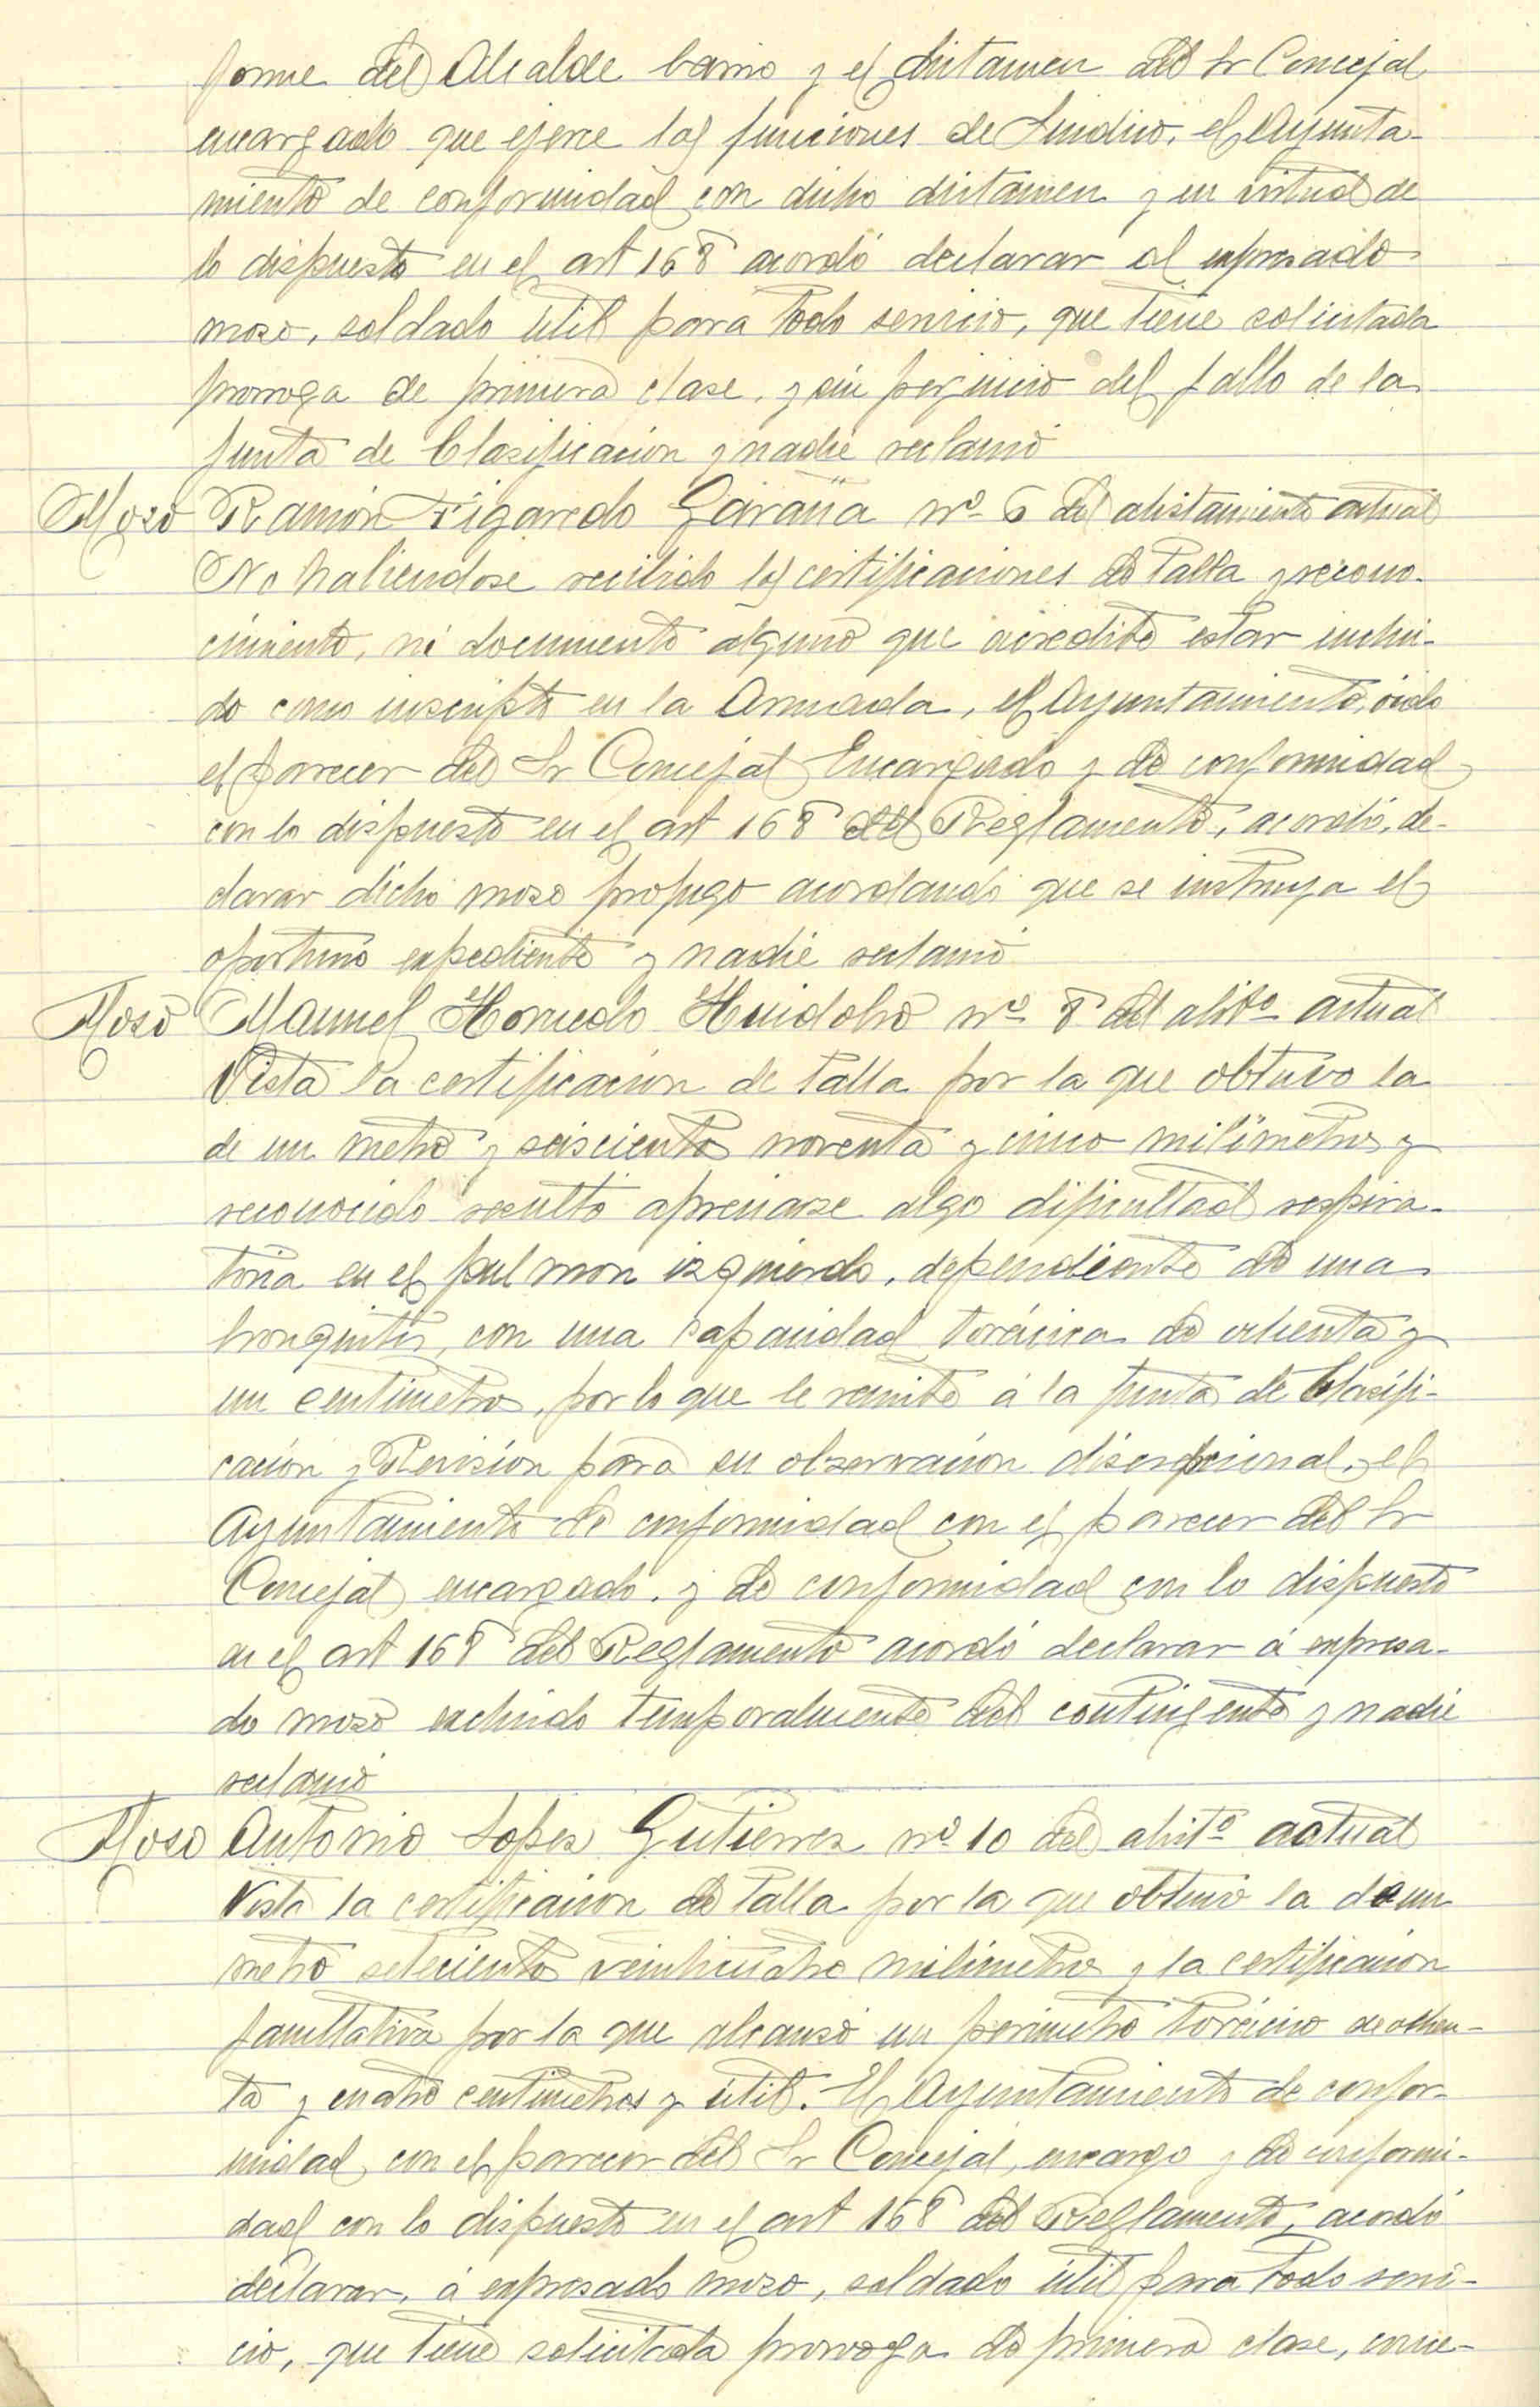 forme del Alcalde barrio y el dictamen del Sr Concejal
encargado que ejerce las funciones de Sindico, el Ayunta-
miento de conformidad con dicho dictamen y en virtud de
lo dispuesto en el art 168 acordó declarar al expresado
mozo, soldado útil para todo servicio, que tiene solicitada
prorroga de primera clase, y sin perjuicio del fallo de la
Junta de Clasificación y nadie reclamó
Mozo Ramón Figaredo Garaña nº 6 del alistamiento actual
No habiendose recibido las certificaciones de talla y recono-
cimiento, ni documento alguno que acredite estar inclui-
do como inscripto en la Armada, el Ayuntamiento, oido
el parecer del Sr Concejal Encargado y de conformidad
con lo dispuesto en el art 168 del Reglamento, acordó, de-
clarar dicho mozo profugo acordando que se instruya el
oportuno expediente y nadie reclamó
Mozo Manuel Hornedo Huidobro nº 8 del alistº actual
Vista la certificación de talla por la que obtuvo la
de un metro y seiscientos noventa y cinco milímetros y
reconocido resultó apreciarse algo dificultad respira-
toria en el pulmon izquierdo, dependiente de una
bronquitis, con una capacidad torácica de ochenta y
un centimetros, por lo que le remite á la Junta de Clasifi-
cación y Revisión para su observación discrecional, el
Ayuntamiento de conformidad con el parecer del Sr
Concejal encargado, y de conformidad con lo dispuesto
en el art 168 del Reglamento acordó declarar á expresa-
do mozo excluido temporalmente del contingente y nadie
reclamó
Mozo Antonio Lopez Gutierrez nº 10 del alistº actual
Vista la certificación de talla por la que obtuvo la de un
metro setecientos veinticuatro milimetros y la certificación
facultativa por la que alcanzó un perimetro torácico de ochen-
ta y cuatro centimetros y útil. El Ayuntamiento de confor-
midad, con el parecer del Sr Concejal, encargo y de conformi-
dad con lo dispuesto en el art 168 del Reglamento, acordó
declarar, á expresado mozo, soldado útil para todo servi-
cio, que tiene solicitada prorroga de primera clase, conce-